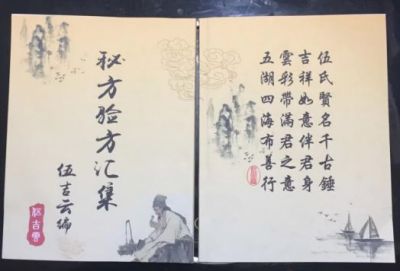 秘方验方汇集
伍吉云编
伍氏賢名千古錘
吉祥如意伴君身
雲彩帶滿君之意
五湖四海布善行